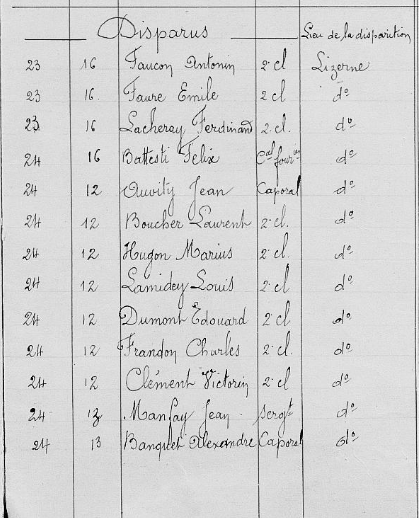 Disparus Lieu de la disparition
23 16 Faucon Antonin 2e cl Lizerne
23 16 Faure Emile 2 cl do
23 16 Lacheray Ferdinand 2 cl. do
24 16 Battesti Félix Cal fourer do
24 12 Auvity Jean Caporal do
24 12 Boucher Laurent 2e cl. do
24 12 Hugon Marius 2e cl. do
24 12 Lamidey Louis 2e cl do
24 12 Dumont Edouard 2e cl do
24 12 Frandon Charles 2e cl. do
24 12 Clément Victorin 2e cl do
24 13 Manfay Jean Sergt do
24 13 Banquet Alexandre Caporal do